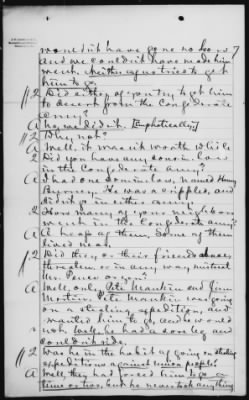 wouldn't have gone no how 7
and we couldn't have made him
went. Neither of us tried to get
him to go.
Did either of you try to get him
to desert from the Confederate
army?
A No, we didn't. [Emphatically.]
Why not?
A Well, it wasn't worth while
Did you have any cousin
in the Confederate Army?
A I had one named Henry
Burney. He was a crippled, and
didn't go in either army.
How many of your neighbors
went in the Confederate army?
A A heap of them. Some of them
lived near.
Did they or their friends abuse,
threaten, or in any way mistreat
Mr.
A Well, only Pete Mankin and Jim
Morton. Pete Mankin was going
on a stealing expedition, and
wanted him to go, and he would
not. Well, he had a sore leg and
couldn't ride.
Was he in the habit of going on stealing
expeditions against union people?
A Well, they had forced him to go a
time or two, but he never took anything